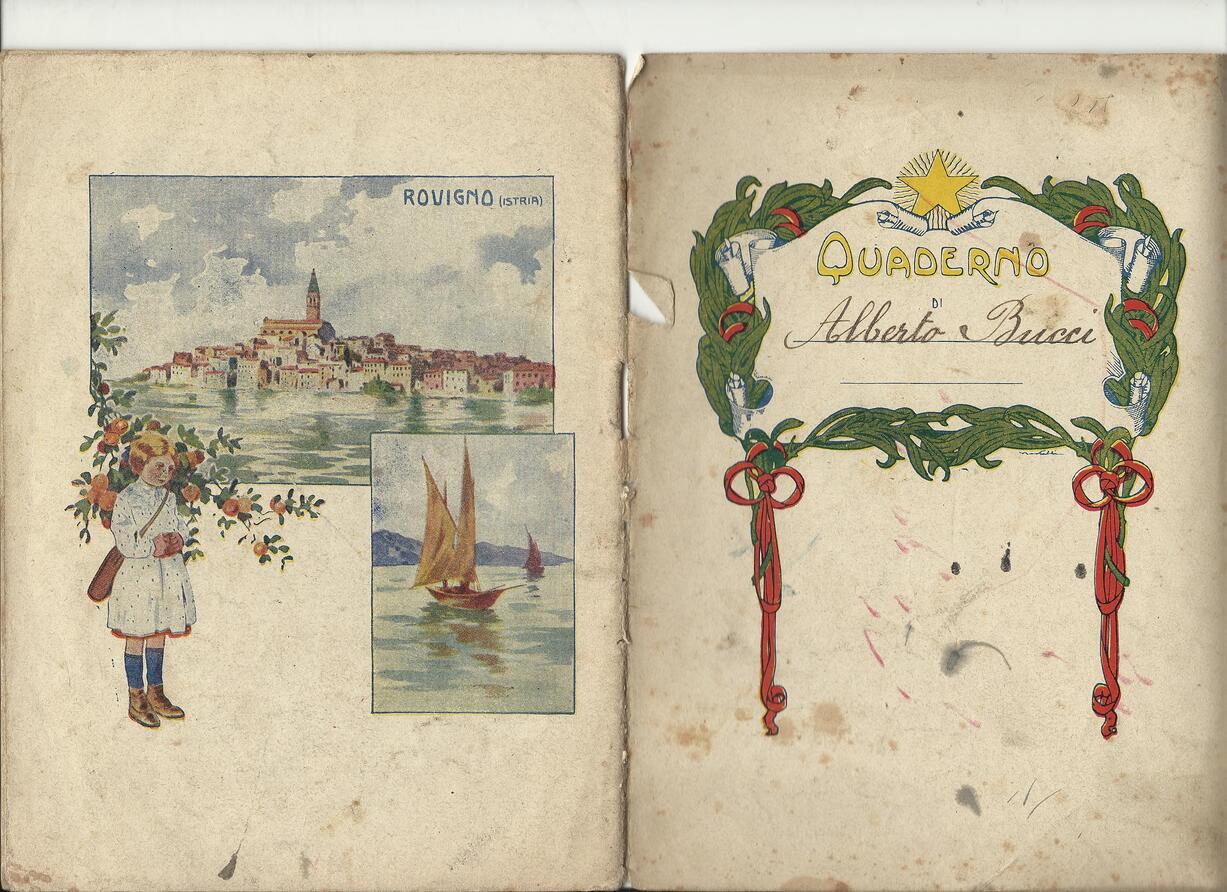 ROVIGNO (ISTRIA)
QUADERNO
DI
Alberto Bucci